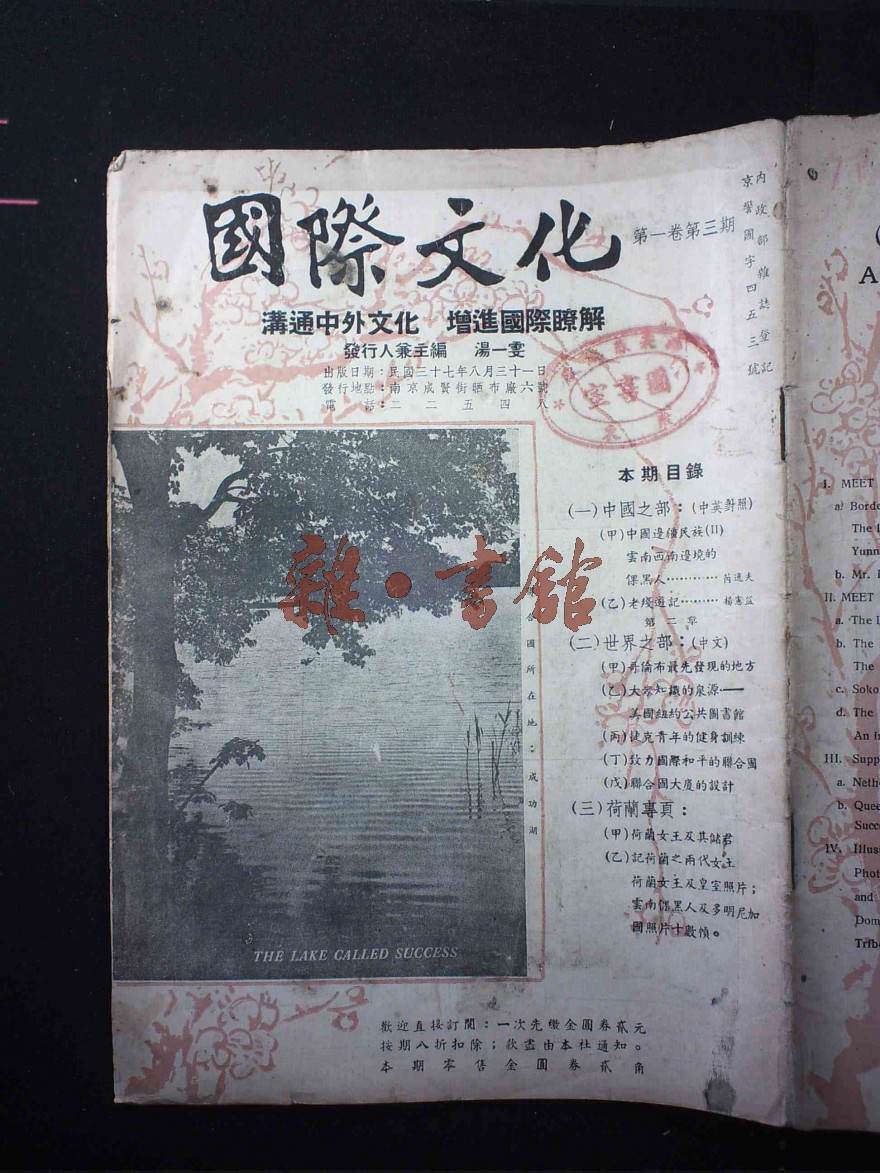 國際文化
第一卷第三期
內政部雜誌登記
京警國字四五三號
溝通中外文化 增進國際瞭解
發行人兼主編 湯一雯
出版日期：民國三十七年八月三十一日
發行地點：南京成賢街晒布廠六號
電話：二二五四八
圖書室
本期目錄
(一)中國之部：(中英對照)
(甲)中國邊疆民族(II)
雲南西南邊境的
倮黑人…………芮逸夫
(乙)老殘遊記………楊憲益
第二章
(二)世界之部：(中文)
(甲)哥倫布最先發現的地方
(乙)大眾知識的泉源——
美國紐約公共圖書館
(丙)捷克青年的健身訓練
(丁)致力國際和平的聯合國
(戊)聯合國大廈的設計
(三)荷蘭專頁：
(甲)荷蘭女王及其儲君
(乙)記荷蘭之兩代女王
荷蘭女王及皇室照片；
雲南倮黑人及多明尼加
國照片十數幀。
合國所在地：成功湖
THE LAKE CALLED SUCCESS
雜·書館
歡迎直接訂閱：一次先繳金圓券貳元
按期八折扣除；款盡由本社通知。
本期零售金圓券貳角
A
I. MEET
a. Borde
The L
Yunn
b. Mr. D
II. MEET
a. The
b. The
The
c. Soko
d. The
An in
III. Supp
a. Neth
b. Quee
Succ
IV. Illus
Phot
and
Dom
Tribe